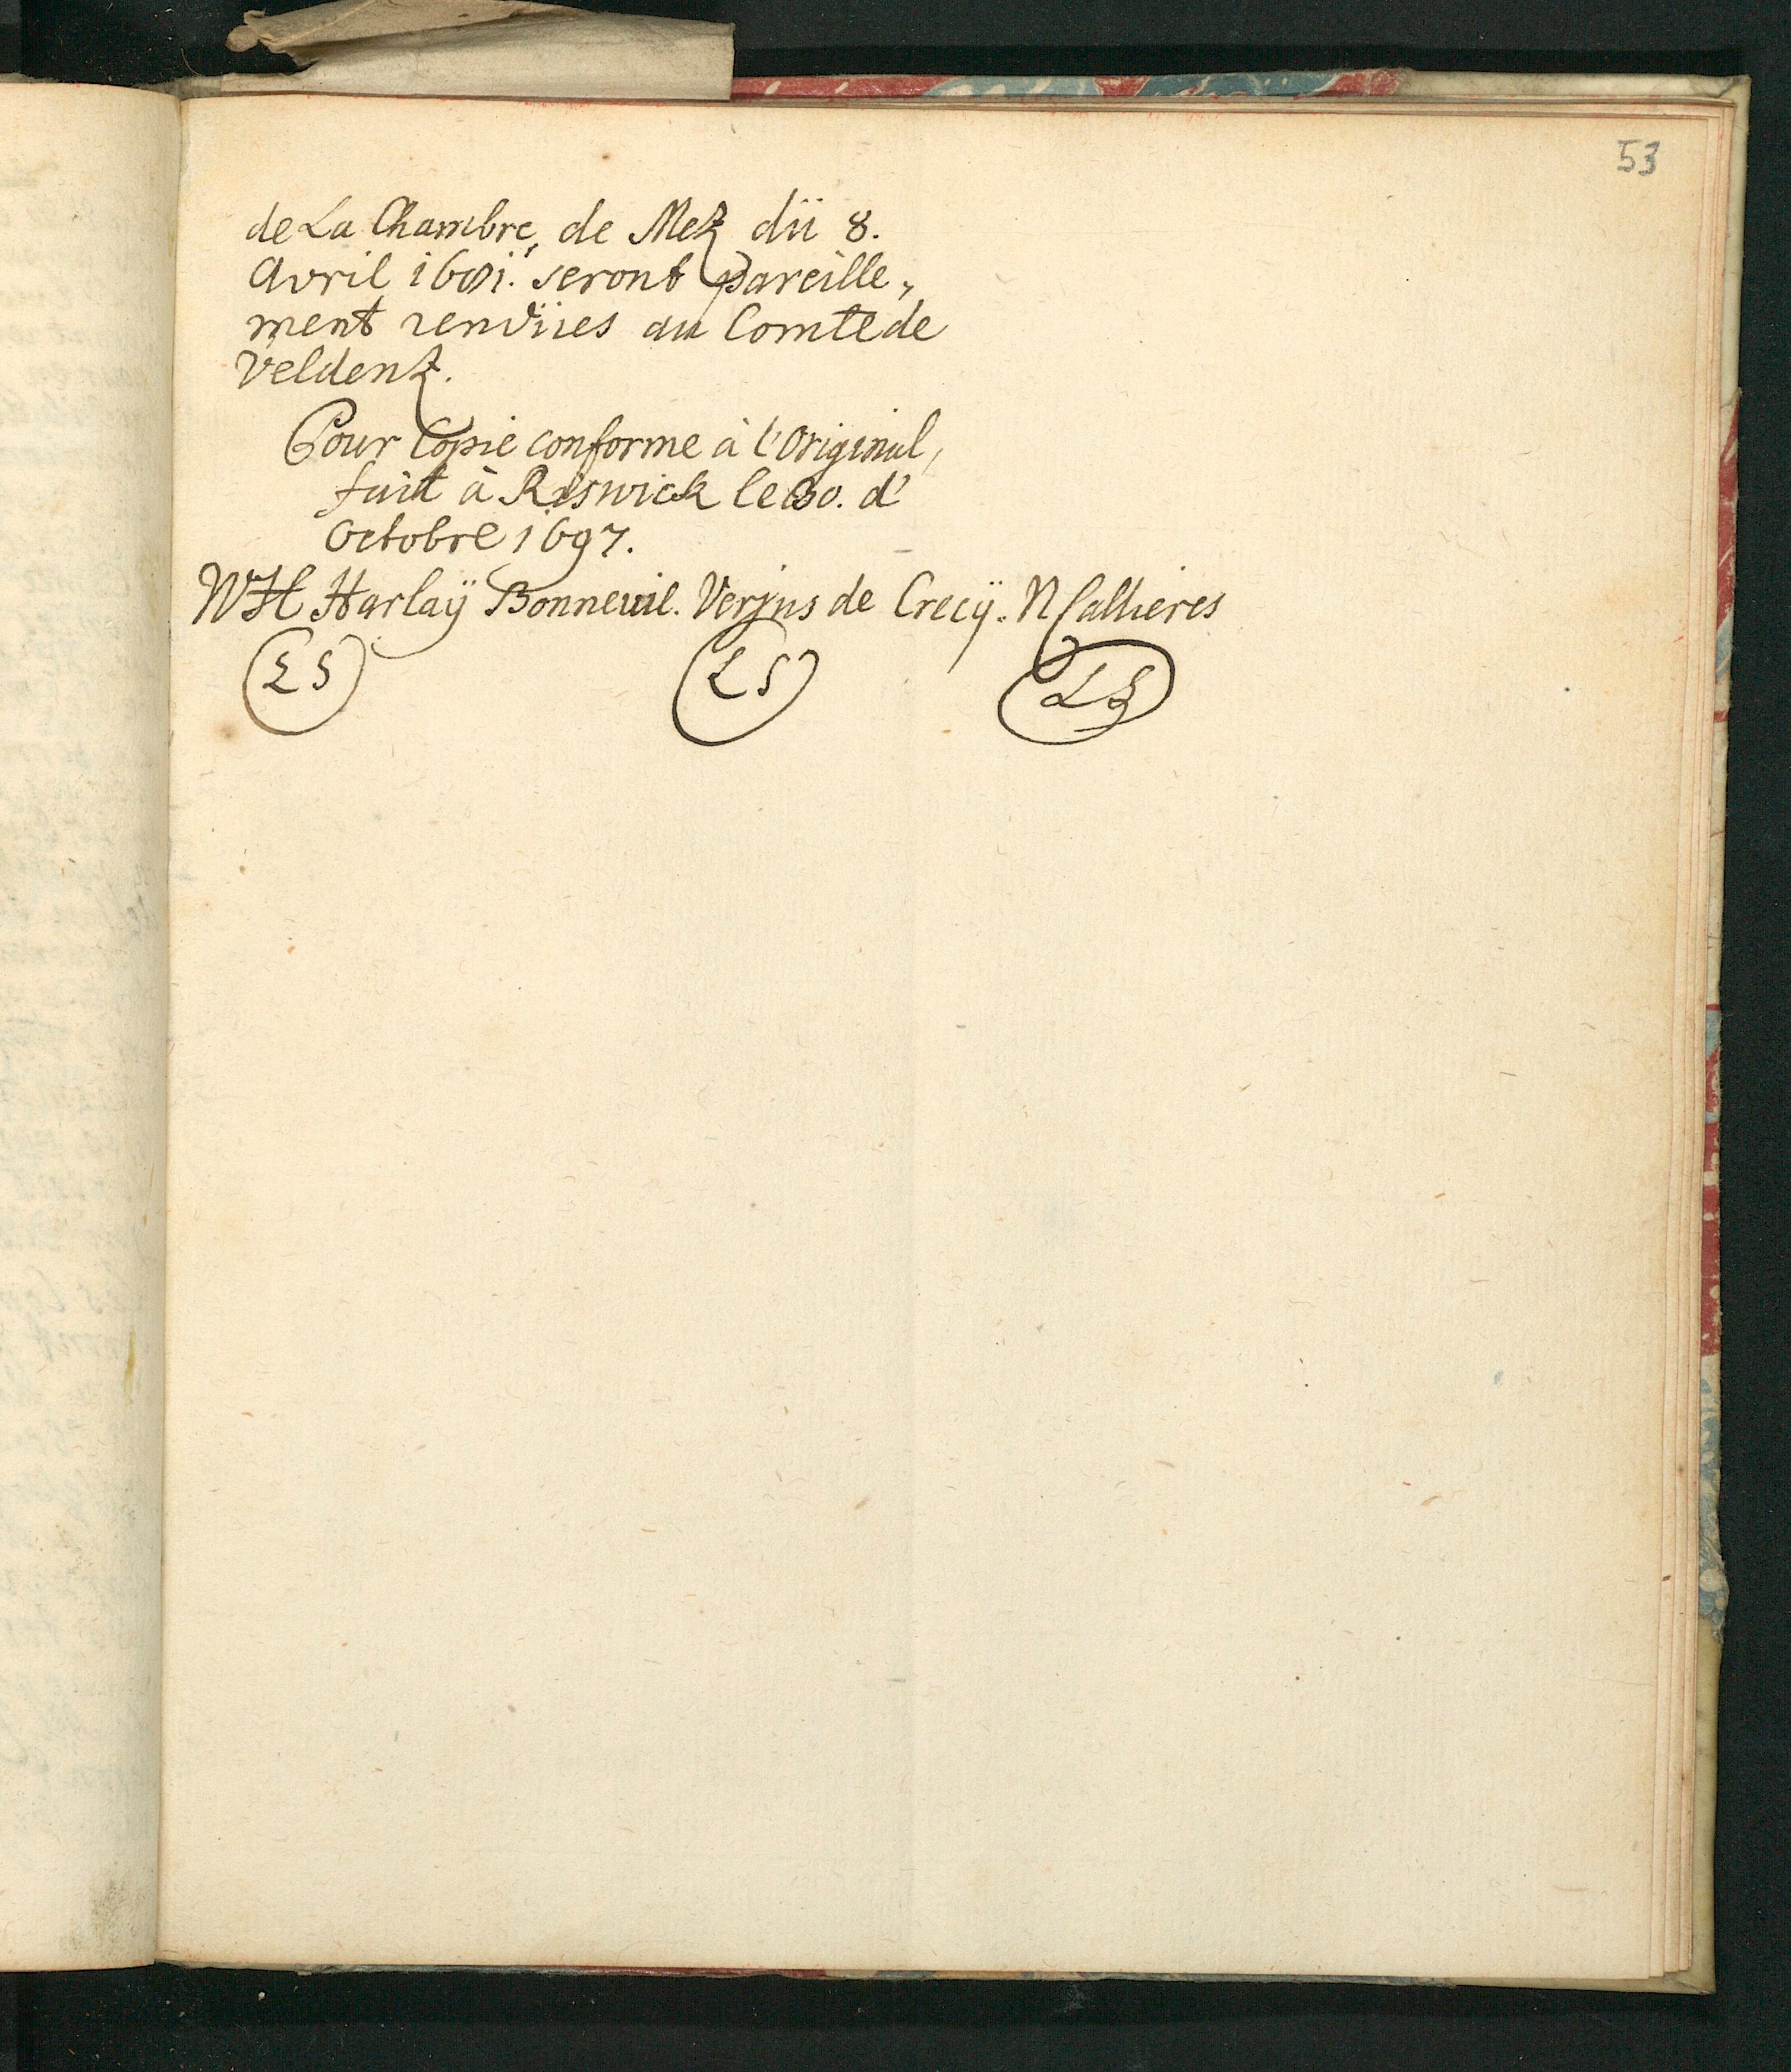 53
de La Chambre, de Metz dü 8.
Avril 1681. seront pareille„
ment rendües au Comte de
Veldentz.
Pour Copie conforme à l'Original,
fait à Riswick le 30. d'
Octobre 1697.
WH Harlaÿ Bonneuil. Verjus de Crecÿ. N Callieres
LS LS LS